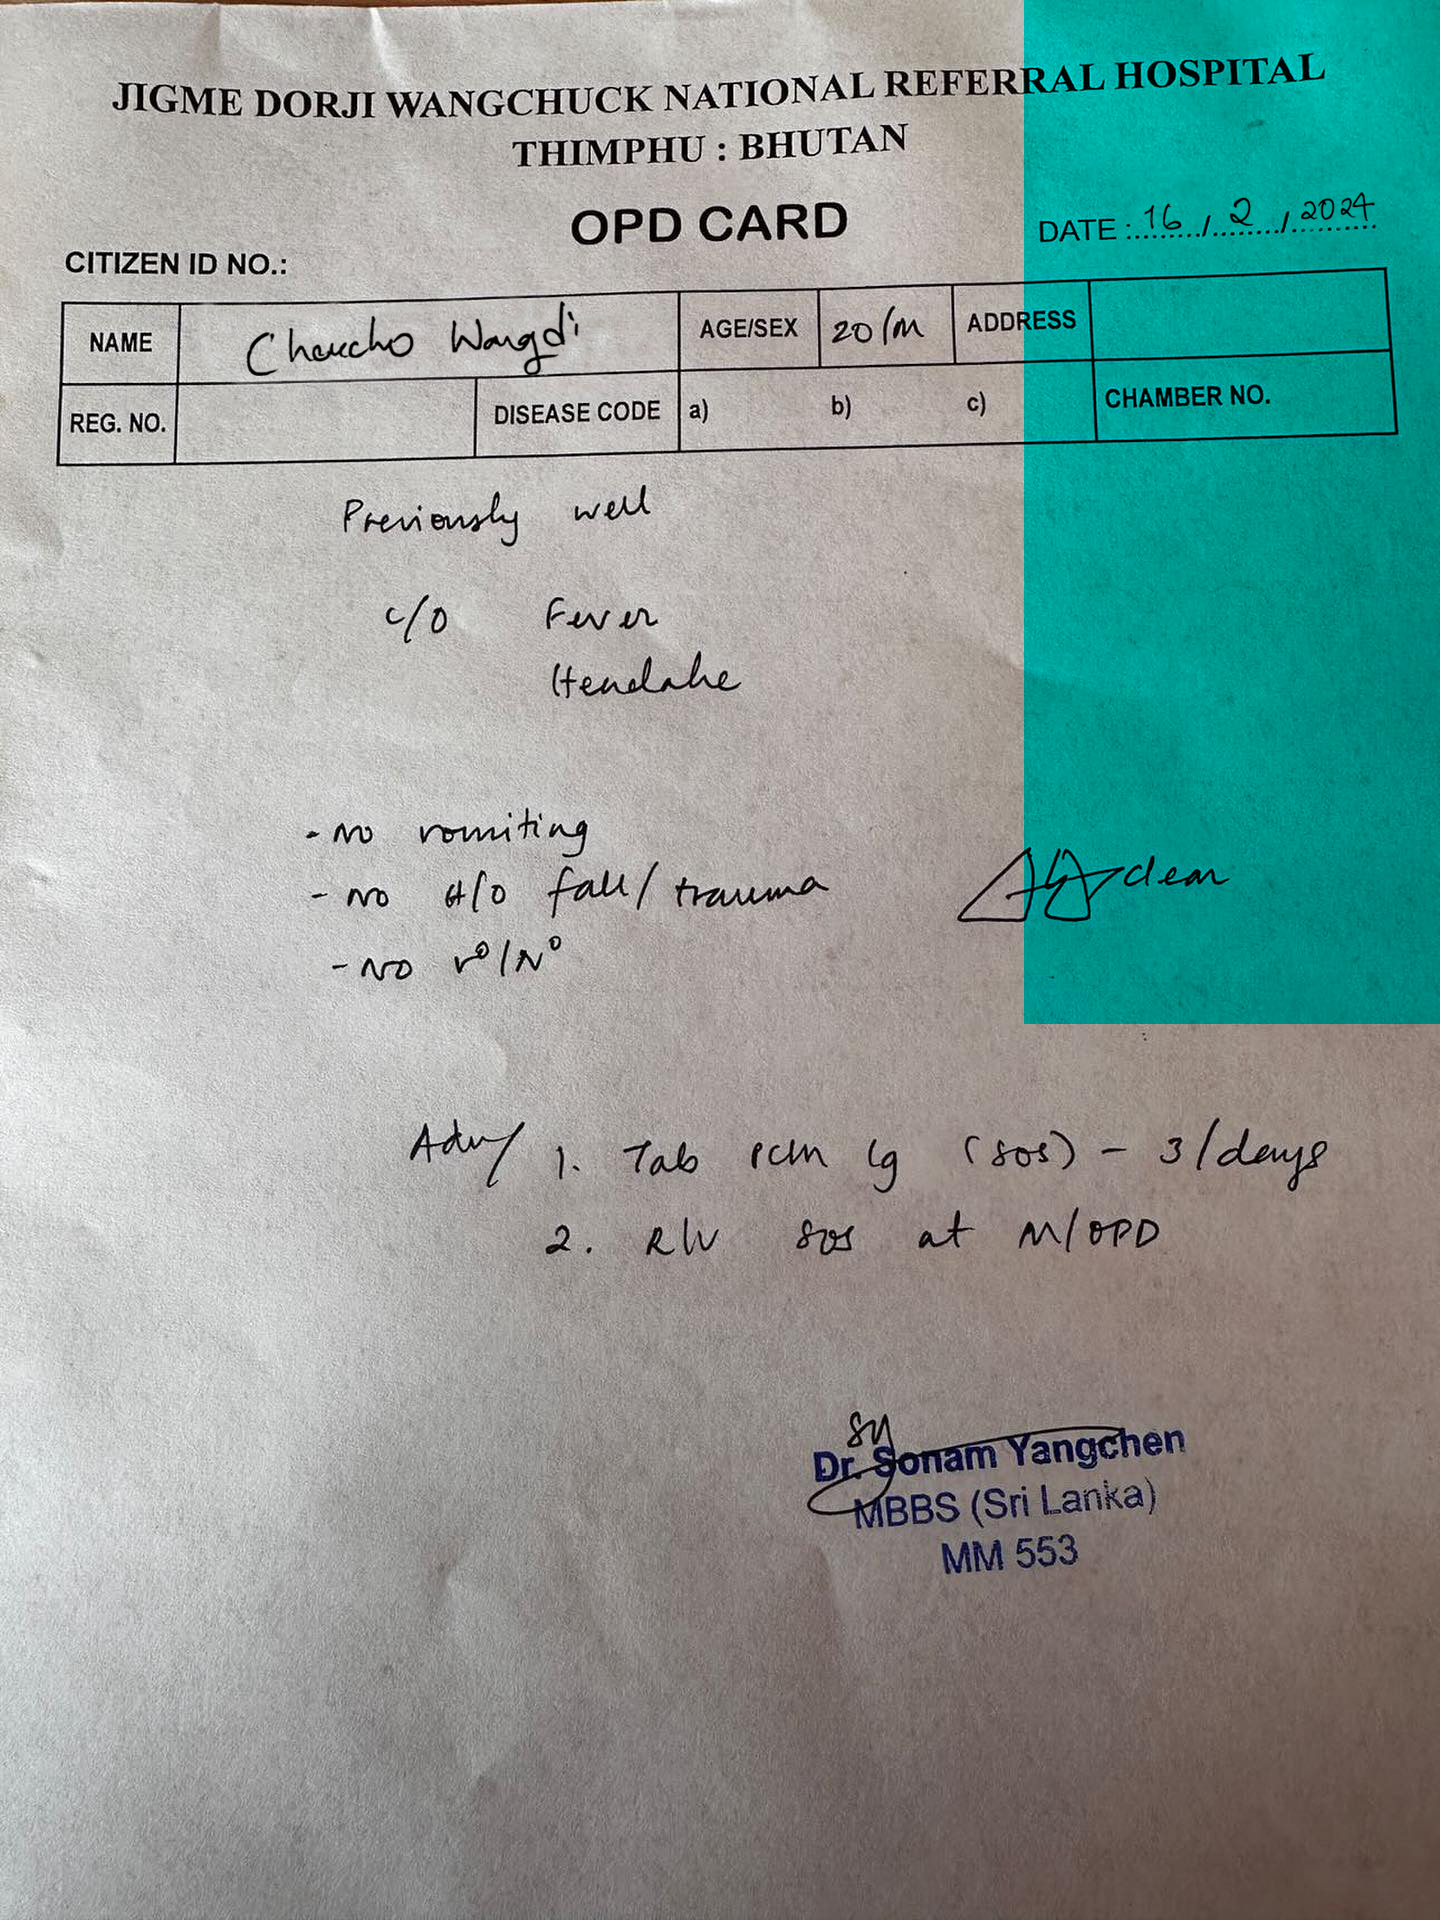 JIGME DORJI WANGCHUCK NATIONAL REFERRAL HOSPITAL
THIMPHU : BHUTAN
OPD CARD
DATE : 16 / 2 / 2024
CITIZEN ID NO.:
NAME Chencho Wangdi AGE/SEX 20/M ADDRESS
REG. NO. DISEASE CODE a) b) c) CHAMBER NO.
Previously well
c/o Fever
Headahe
- no vomiting
- no H/o fall/trauma clear
- no v°/N°
Adv/ 1. Tab PCM 1g (sos) - 3/days
2. R/V sos at M/OPD
Sy
Dr. Sonam Yangchen
MBBS (Sri Lanka)
MM 553